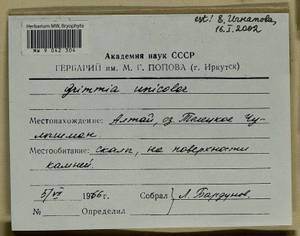 Herbarium MW, Bryophyta
MW 9 042 304
est! Е. Игнатова,
16.I.2002
Академия наук СССР
ГЕРБАРИЙ им. М. Г. ПОПОВА (г. Иркутск)
Grimmia unicolor
Местонахождение: Алтай, оз. Телецкое, Чу-
лышман
Местообитание: скалы, на поверхности
камней.
5/VII 1966 г. Собрал Л. Бардунов
№ Определил